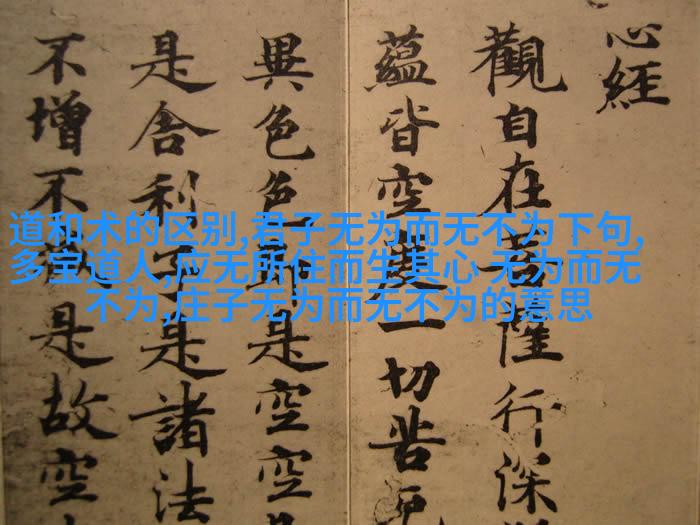 心經
觀自在菩薩行深
蘊皆空度一切苦厄
異色色即是空空
是舍利子是諸法
不增不減是故空
道和术的区别,君子无为而无不为下句,
多宝道人,应无所住而生其心 无为而无
不为,庄子无为而无不为的意思